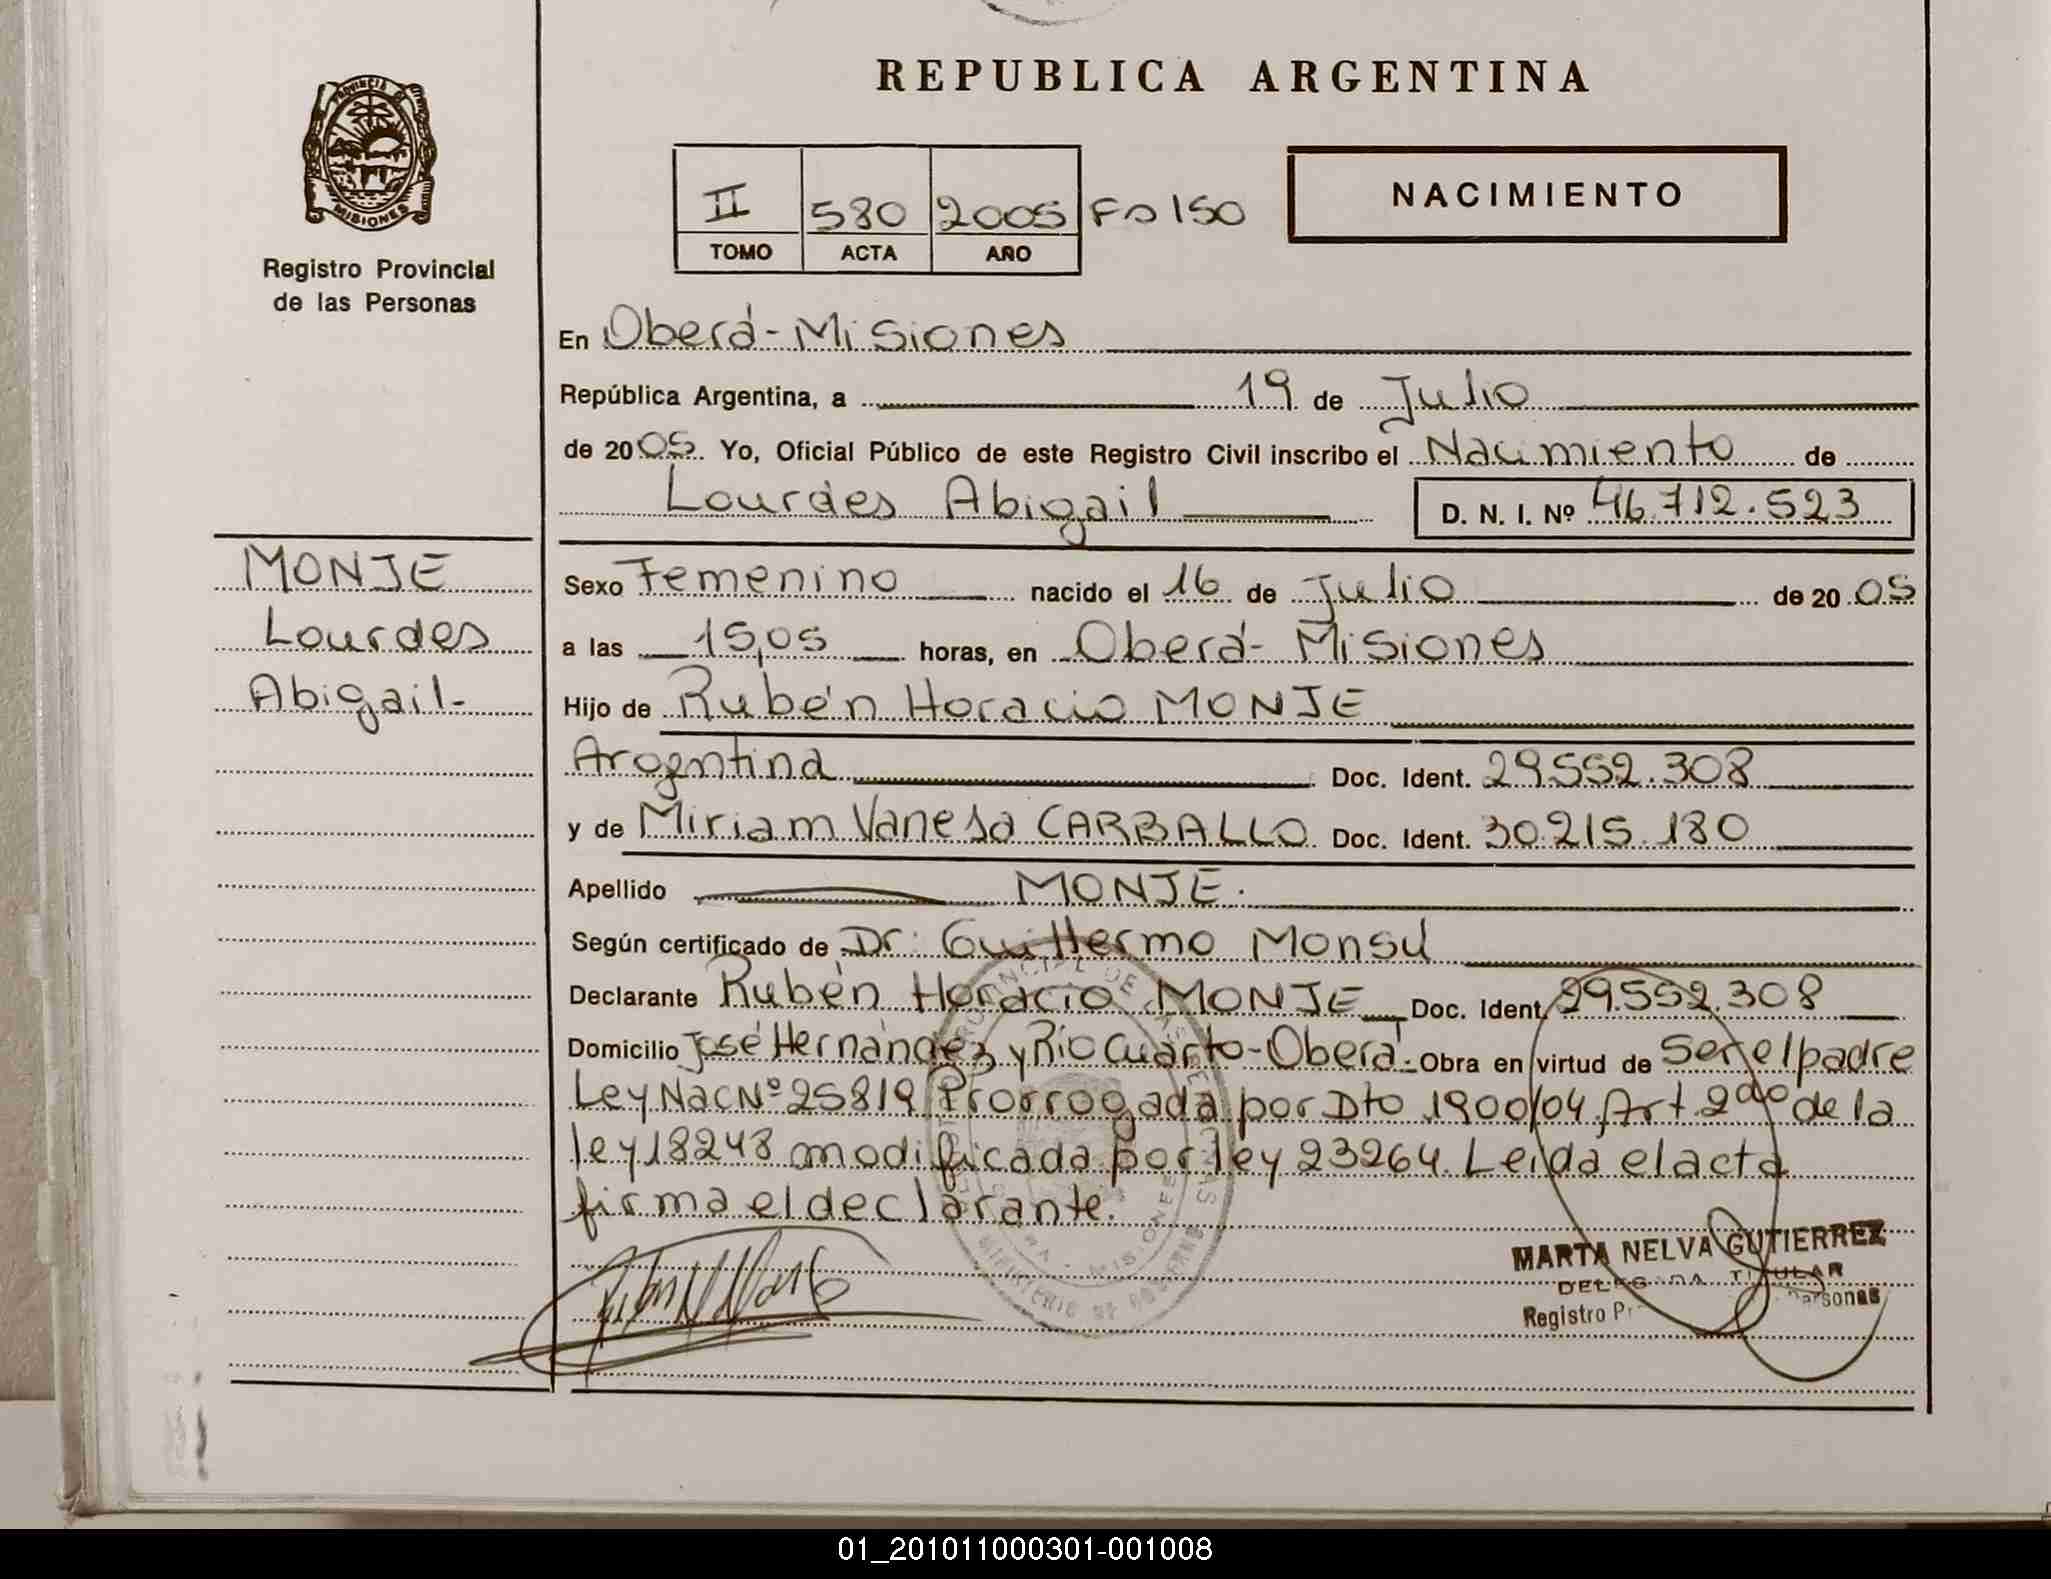 REPUBLICA ARGENTINA
PROVINCIA DE
MISIONES
Registro Provincial
de las Personas
II 580 2005 Fo 150
TOMO ACTA AÑO
NACIMIENTO
En Oberá - Misiones
República Argentina, a 19 de Julio
de 2005. Yo, Oficial Público de este Registro Civil inscribo el Nacimiento de
Lourdes Abigail D. N. I. Nº 46.712.523
MONJE
Lourdes
Abigail-
Sexo Femenino nacido el 16 de Julio de 2005
a las 15,05 horas, en Oberá - Misiones
Hijo de Rubén Horacio MONJE
Argentina Doc. Ident. 29.552.308
y de Miriam Vanesa CARBALLO Doc. Ident. 30.215.180
Apellido MONJE.
Según certificado de Dr. Guillermo Monsu
Declarante Rubén Horacio MONJE Doc. Ident. 29.552.308
Domicilio José Hernández y Rio Cuarto - Oberá. Obra en virtud de Ser el padre
Ley Nac Nº 25819 Prorrogada por Dto 1900/04 Art. 2do de la
ley 18248 modificada por ley 23264. Leida el acta
firma el declarante.
MINISTERIO DE GOBIERNO
MARTA NELVA GUTIERREZ
DELEGADA TITULAR
Registro Personas
01_201011000301-001008